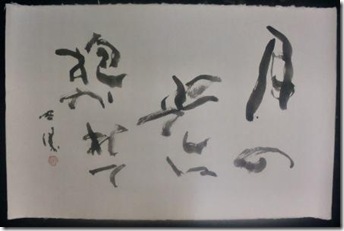 月の
光に
抱かれて